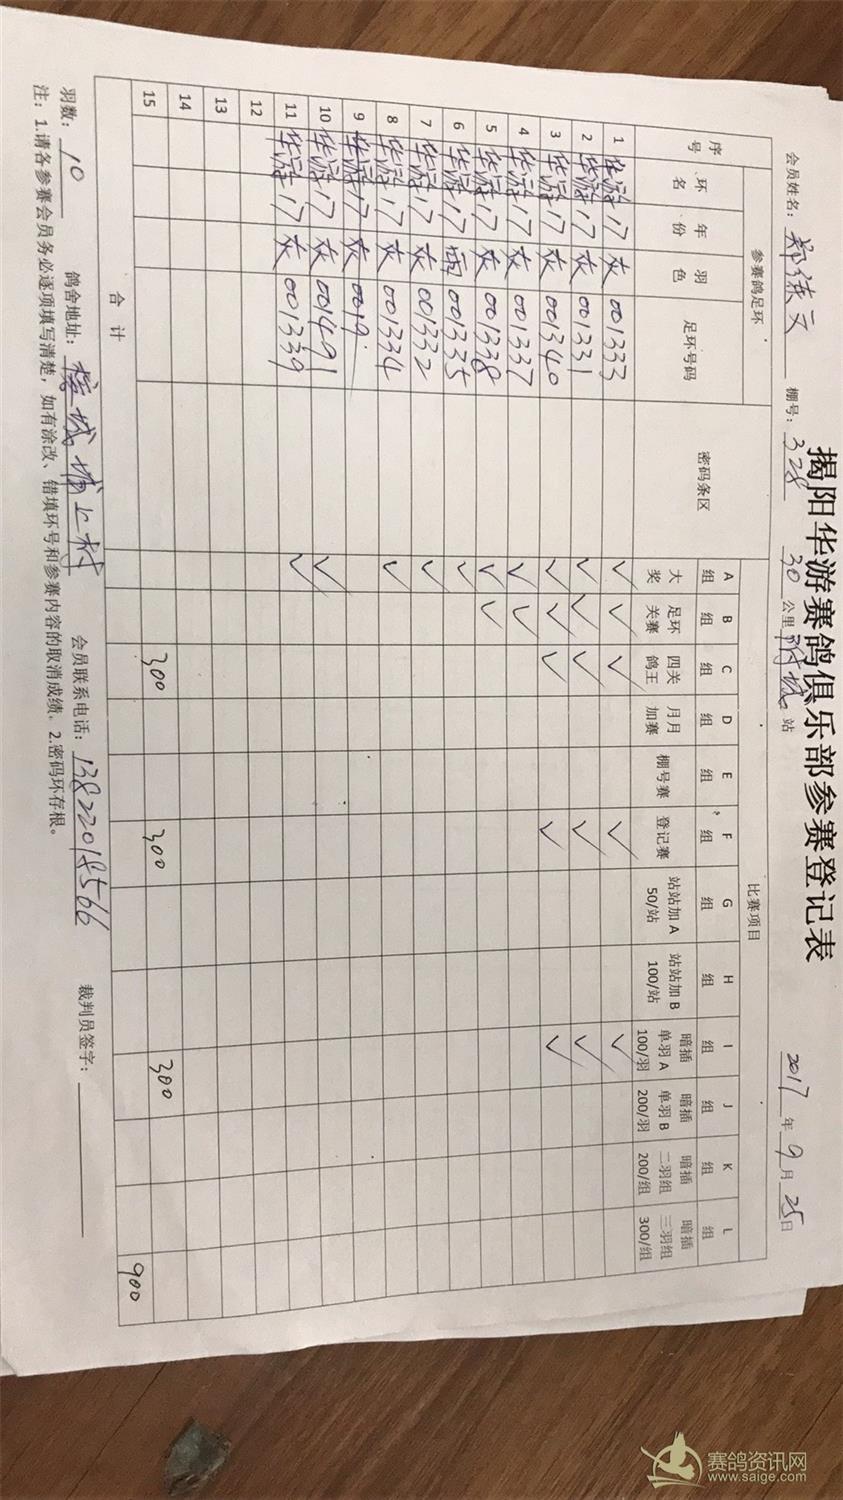 揭阳华游赛鸽俱乐部参赛登记表
会员姓名： 郑 文 棚号：328 30公里 附城 站 2017年9月25日
序号 参赛鸽足环 密码条区 比赛项目
环名 年份 羽色 足环号码 A组 B组 C组 D组 E组 F组 G组 H组 I组 J组 K组 L组
大奖 足环关赛 四关鸽王 月月加赛 棚号赛 登记赛 站站加A 50/站 站站加B 100/站 暗插单羽A 100/羽 暗插单羽B 200/羽 暗插二羽组 200/组 暗插三羽组 300/组
1 华游 17 灰 001333 ✓ ✓ ✓ ✓ ✓
2 华游 17 灰 001331 ✓ ✓ ✓ ✓ ✓
3 华游 17 灰 001340 ✓ ✓ ✓ ✓ ✓
4 华游 17 灰 001337 ✓ ✓
5 华游 17 灰 001338 ✓ ✓
6 华游 17 雨 001335 ✓
7 华游 17 灰 001332 ✓
8 华游 17 灰 001334 ✓
9 华游 17 灰 0019
10 华游 17 灰 001491 ✓
11 华游 17 灰 001339 ✓
12
13
14
15 300 300 300
合计 900
羽数：10 鸽舍地址： 城 上村 会员联系电话：13822018566 裁判员签字：
注：1.请各参赛会员务必逐项填写清楚，如有涂改、错填环号和参赛内容的取消成绩。2.密码环存根。
赛鸽资讯网
www.saige.com